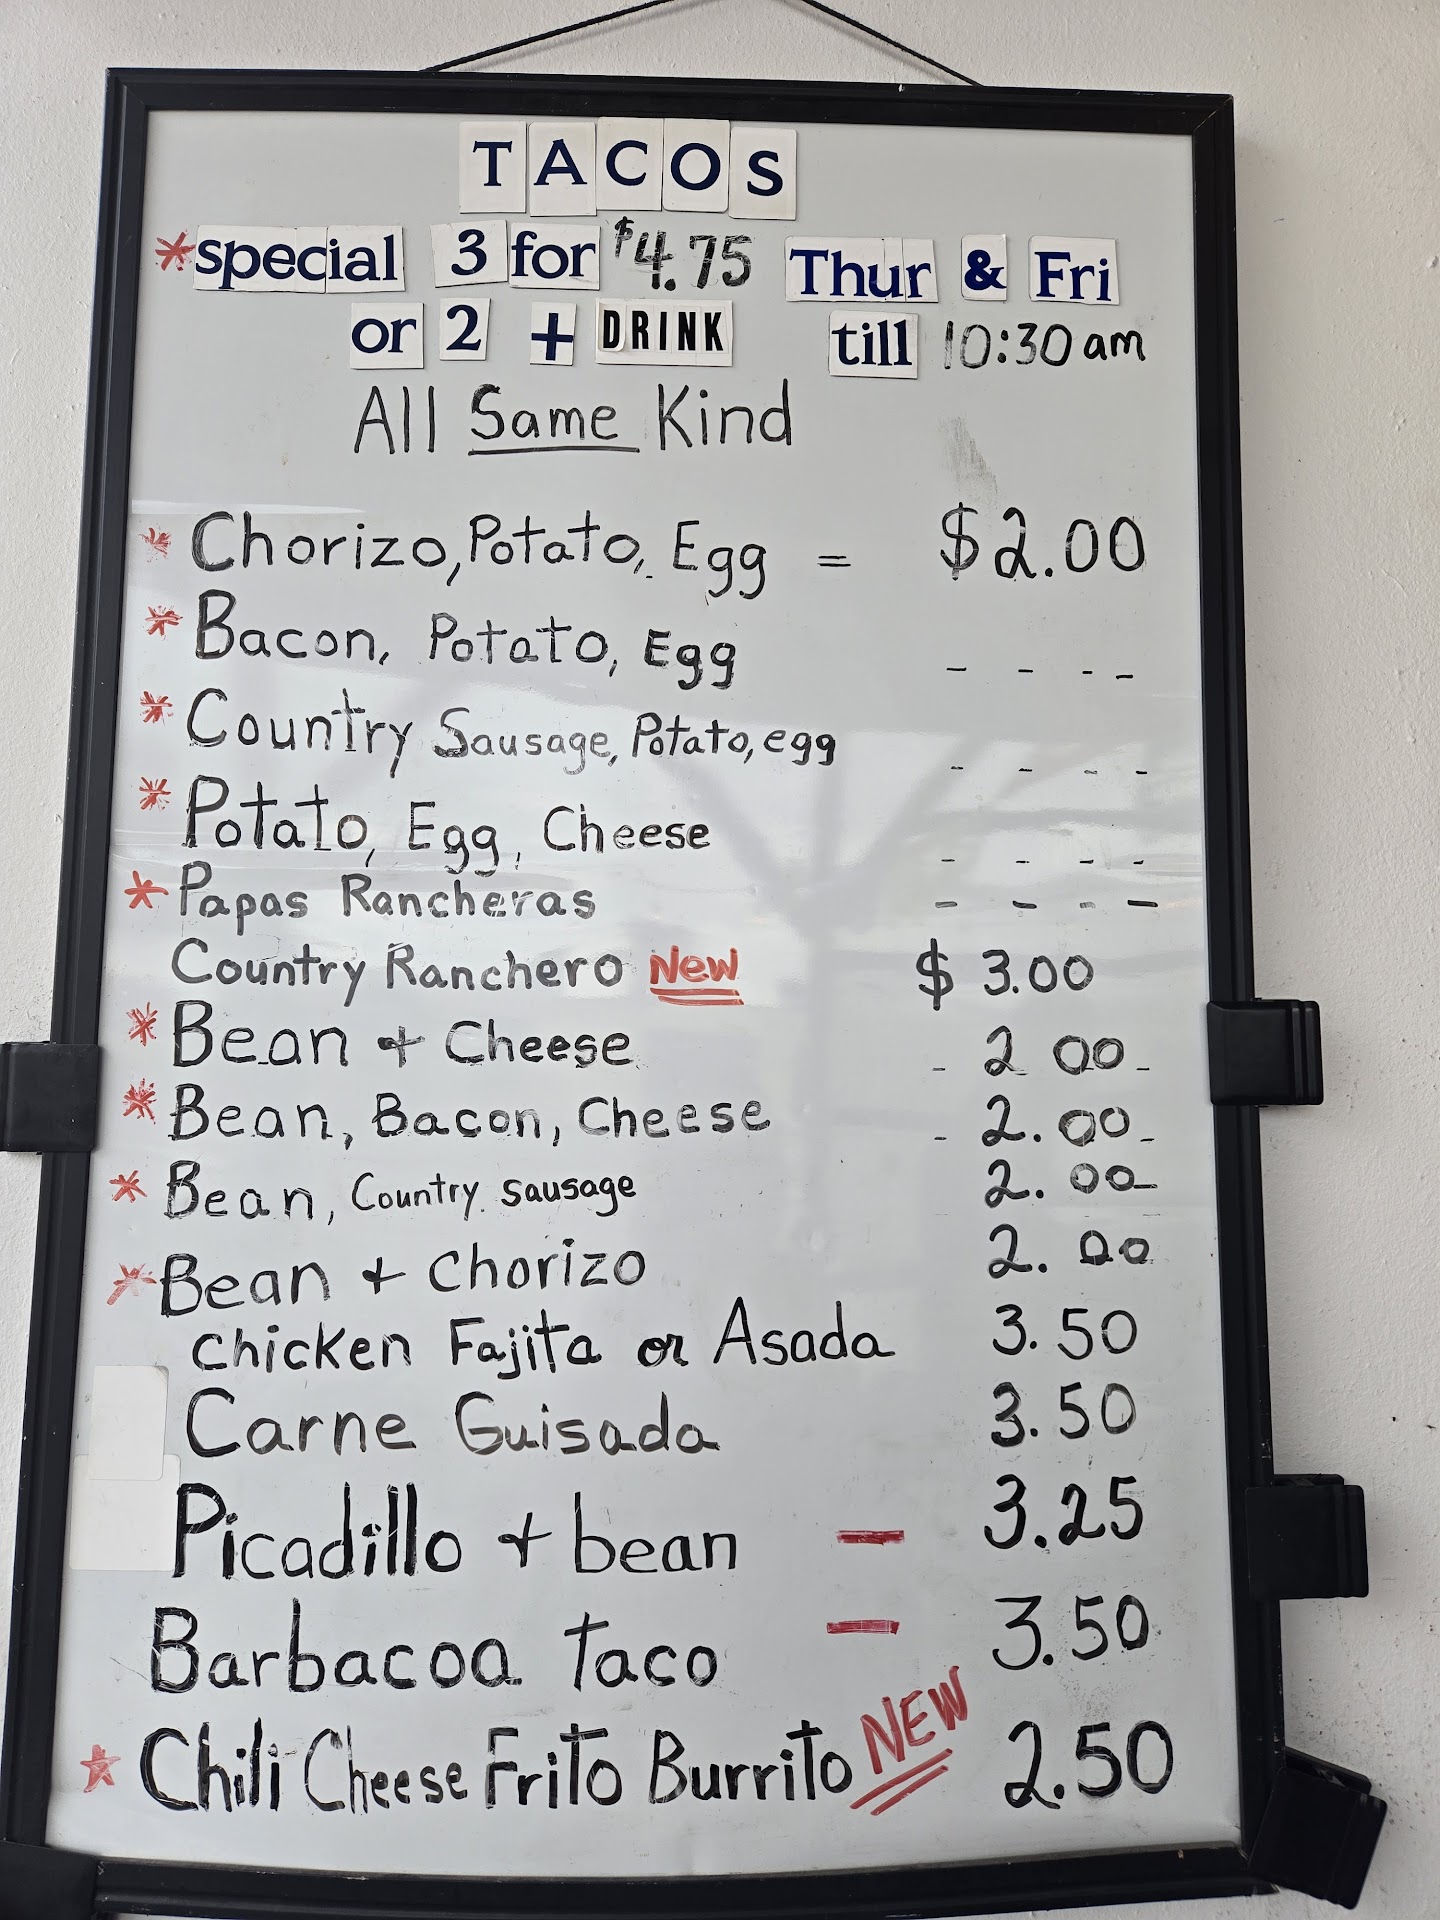 TACOS
*special 3 for $4.75 Thur & Fri
or 2 + DRINK till 10:30 am
All Same Kind
* Chorizo, Potato, Egg = $2.00
* Bacon, Potato, Egg - - - -
* Country Sausage, Potato, egg - - - -
* Potato, Egg, Cheese - - - -
* Papas Rancheras - - - -
Country Ranchero New $ 3.00
* Bean + Cheese - 2 00 -
* Bean, Bacon, Cheese - 2.00 -
* Bean, Country sausage 2.00
* Bean + Chorizo 2.00
chicken Fajita or Asada 3.50
Carne Guisada 3.50
Picadillo + bean - 3.25
Barbacoa taco - 3.50
* Chili Cheese Frito Burrito NEW 2.50